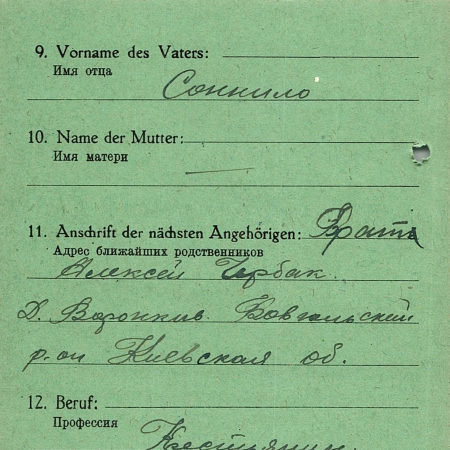 9. Vorname des Vaters:
Имя отца
Соннило
10. Name der Mutter:
Имя матери
—
11. Anschrift der nächsten Angehörigen: Брат
Адрес ближайших родственников
Алексей Чербак.
Д. Воронкив
р-он Киевская об.
12. Beruf:
Профессия